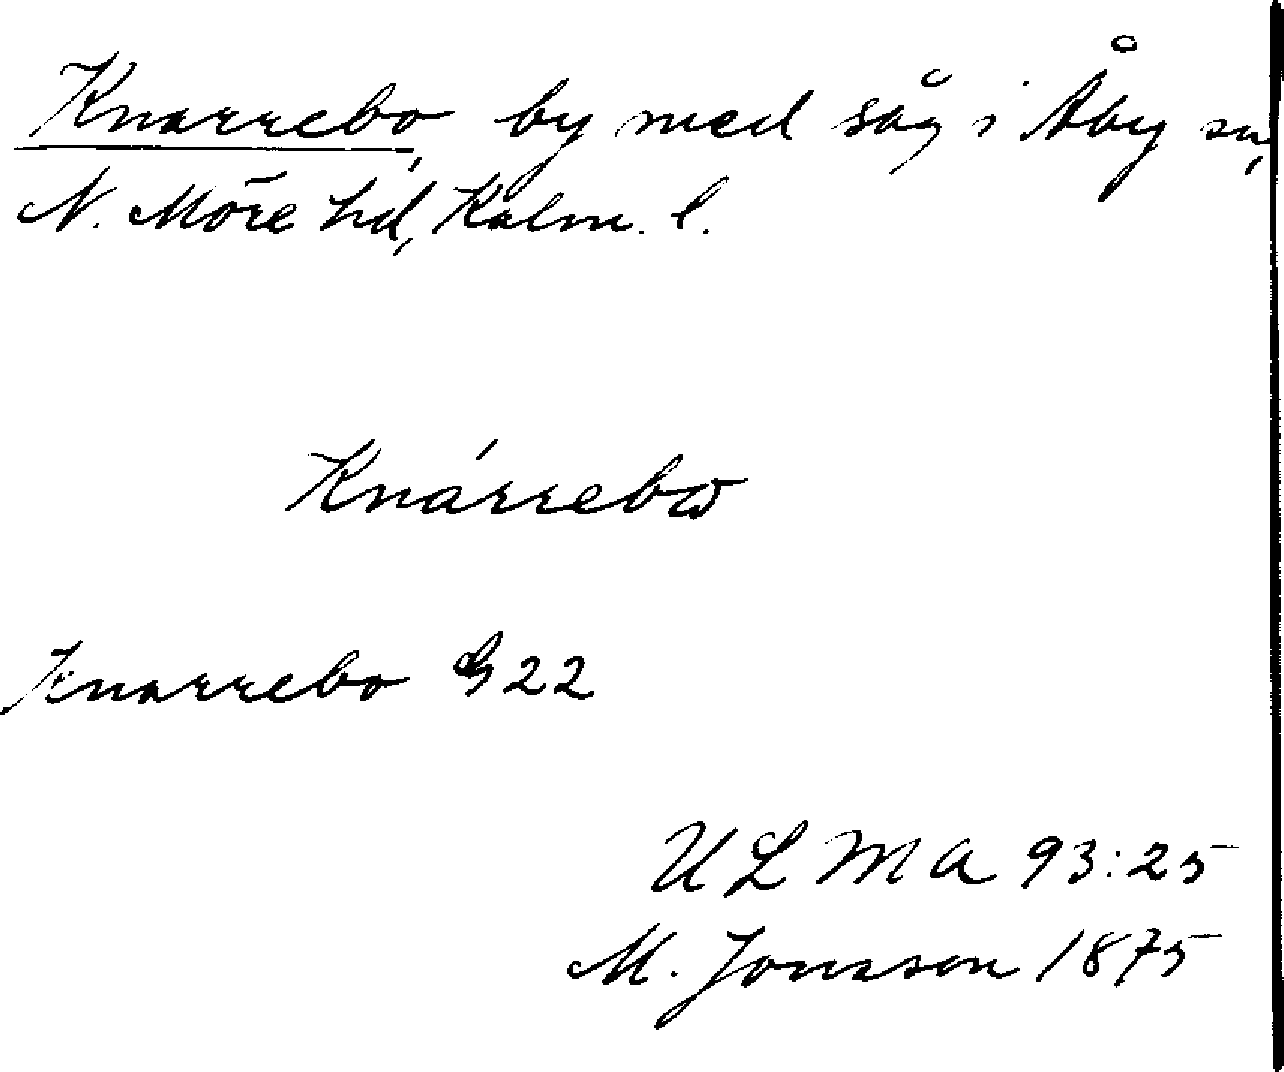 Knarrebo, by med såg i Åby sn,
N. Möre hd, Kalm. l.
Knárrebω
Knarrebo G 22
ULMA 93:25
M. Jonsson 1875